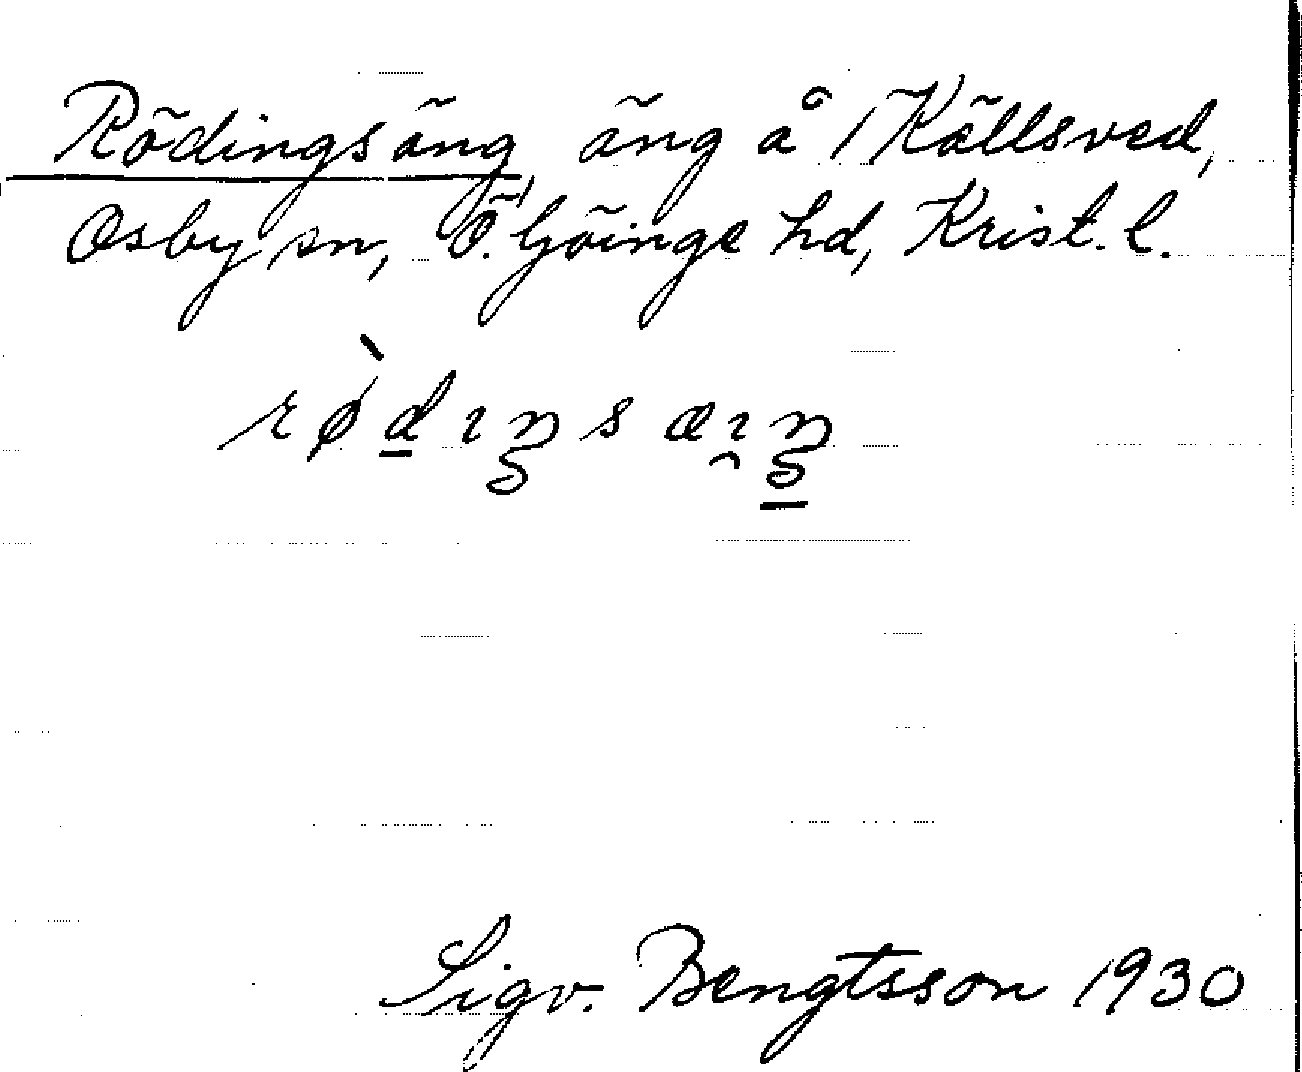 Rödingsäng, äng å 1 Källsved,
Osby sn, Ö. Göinge hd, Krist. l.
rø̀dıŋsæıŋ
Sigv. Bengtsson 1930